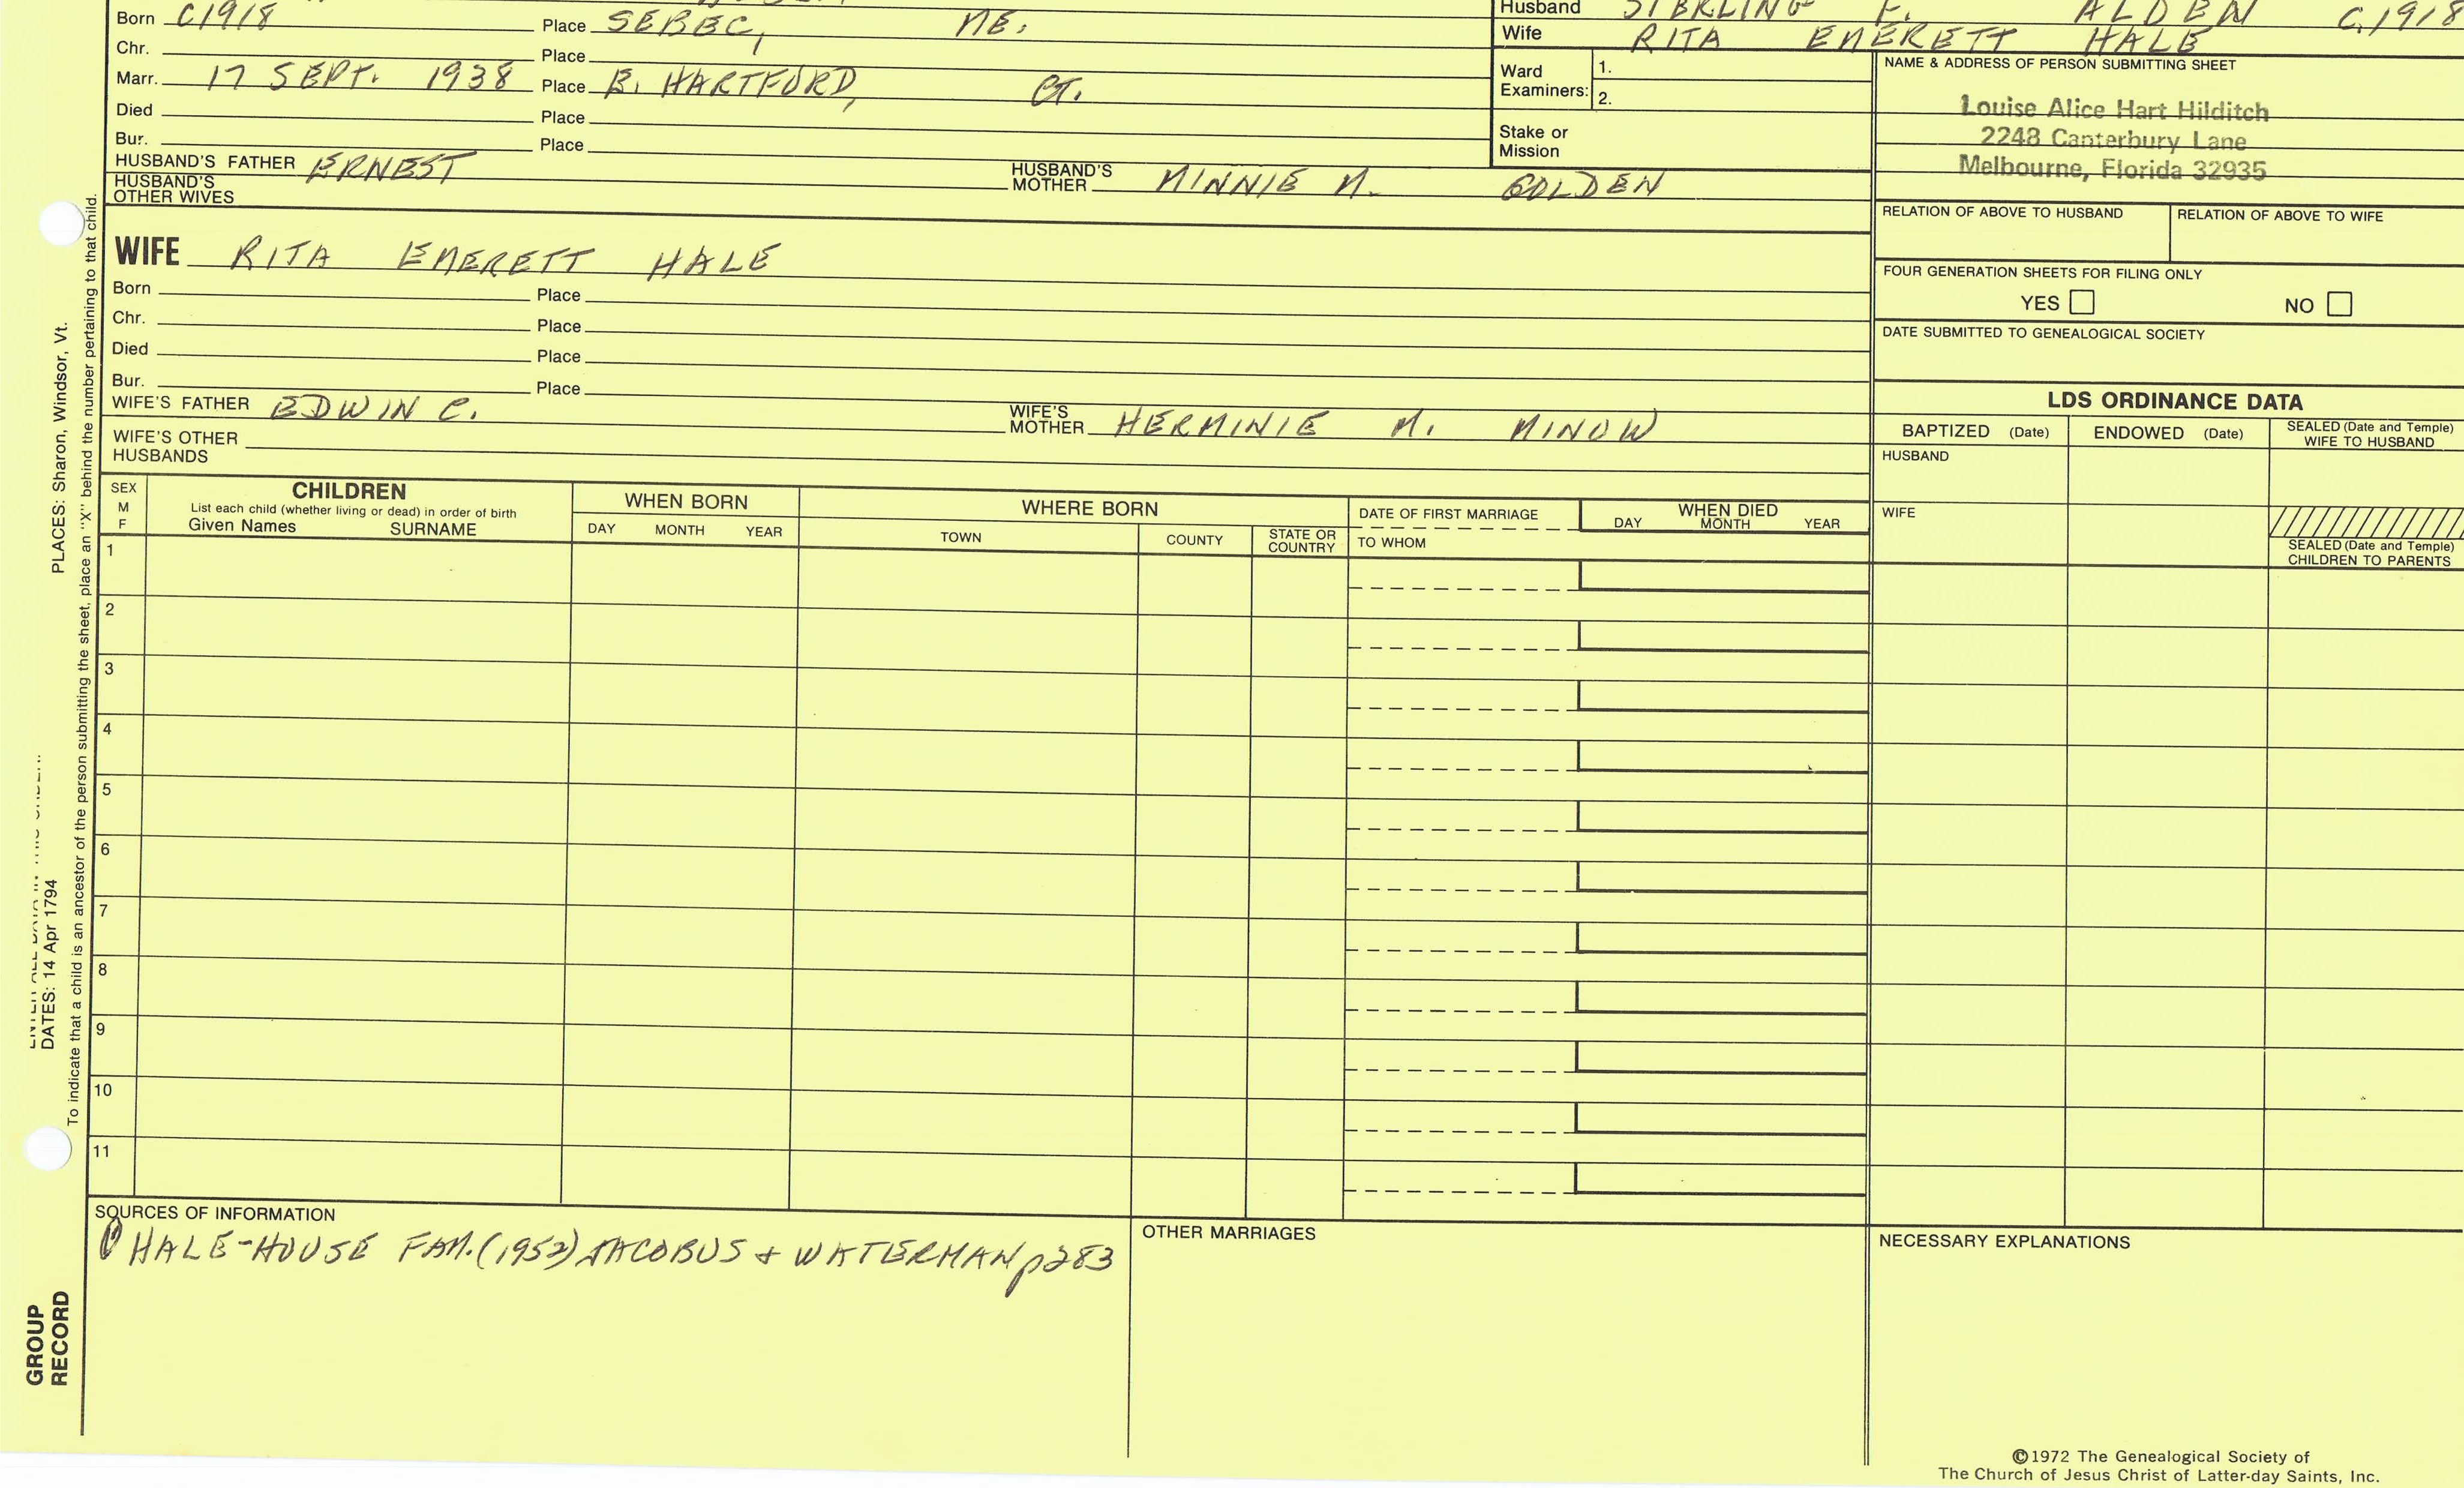 Husband STERLING F. ALDEN C.1918
Born C1918 Place SEBEC, ME.
Wife RITA EMERETT HALE
Chr. Place
Marr. 17 SEPT. 1938 Place E. HARTFORD, CT.
Died Place
Bur. Place
HUSBAND'S FATHER ERNEST
HUSBAND'S MOTHER MINNIE M. GOLDEN
HUSBAND'S OTHER WIVES
Ward Examiners: 1.
2.
Stake or Mission
NAME & ADDRESS OF PERSON SUBMITTING SHEET
Louise Alice Hart Hilditch
2248 Canterbury Lane
Melbourne, Florida 32935
RELATION OF ABOVE TO HUSBAND RELATION OF ABOVE TO WIFE
FOUR GENERATION SHEETS FOR FILING ONLY
YES NO
DATE SUBMITTED TO GENEALOGICAL SOCIETY
WIFE RITA EMERETT HALE
Born Place
Chr. Place
Died Place
Bur. Place
WIFE'S FATHER EDWIN C.
WIFE'S MOTHER HERMINIE M. MINOW
WIFE'S OTHER HUSBANDS
LDS ORDINANCE DATA
BAPTIZED (Date) ENDOWED (Date) SEALED (Date and Temple) WIFE TO HUSBAND
HUSBAND
WIFE
SEALED (Date and Temple) CHILDREN TO PARENTS
SEX M F
CHILDREN
List each child (whether living or dead) in order of birth
Given Names SURNAME
WHEN BORN
DAY MONTH YEAR
WHERE BORN
TOWN COUNTY STATE OR COUNTRY
DATE OF FIRST MARRIAGE
TO WHOM
WHEN DIED
DAY MONTH YEAR
1
2
3
4
5
6
7
8
9
10
11
SOURCES OF INFORMATION
HALE-HOUSE FAM. (1952) JACOBUS & WATERMAN p283
OTHER MARRIAGES
NECESSARY EXPLANATIONS
©1972 The Genealogical Society of
The Church of Jesus Christ of Latter-day Saints, Inc.
PLACES: Sharon, Windsor, Vt.
DATES: 14 Apr 1794
To indicate that a child is an ancestor of the person submitting the sheet, place an "X" behind the number pertaining to that child.
GROUP
RECORD